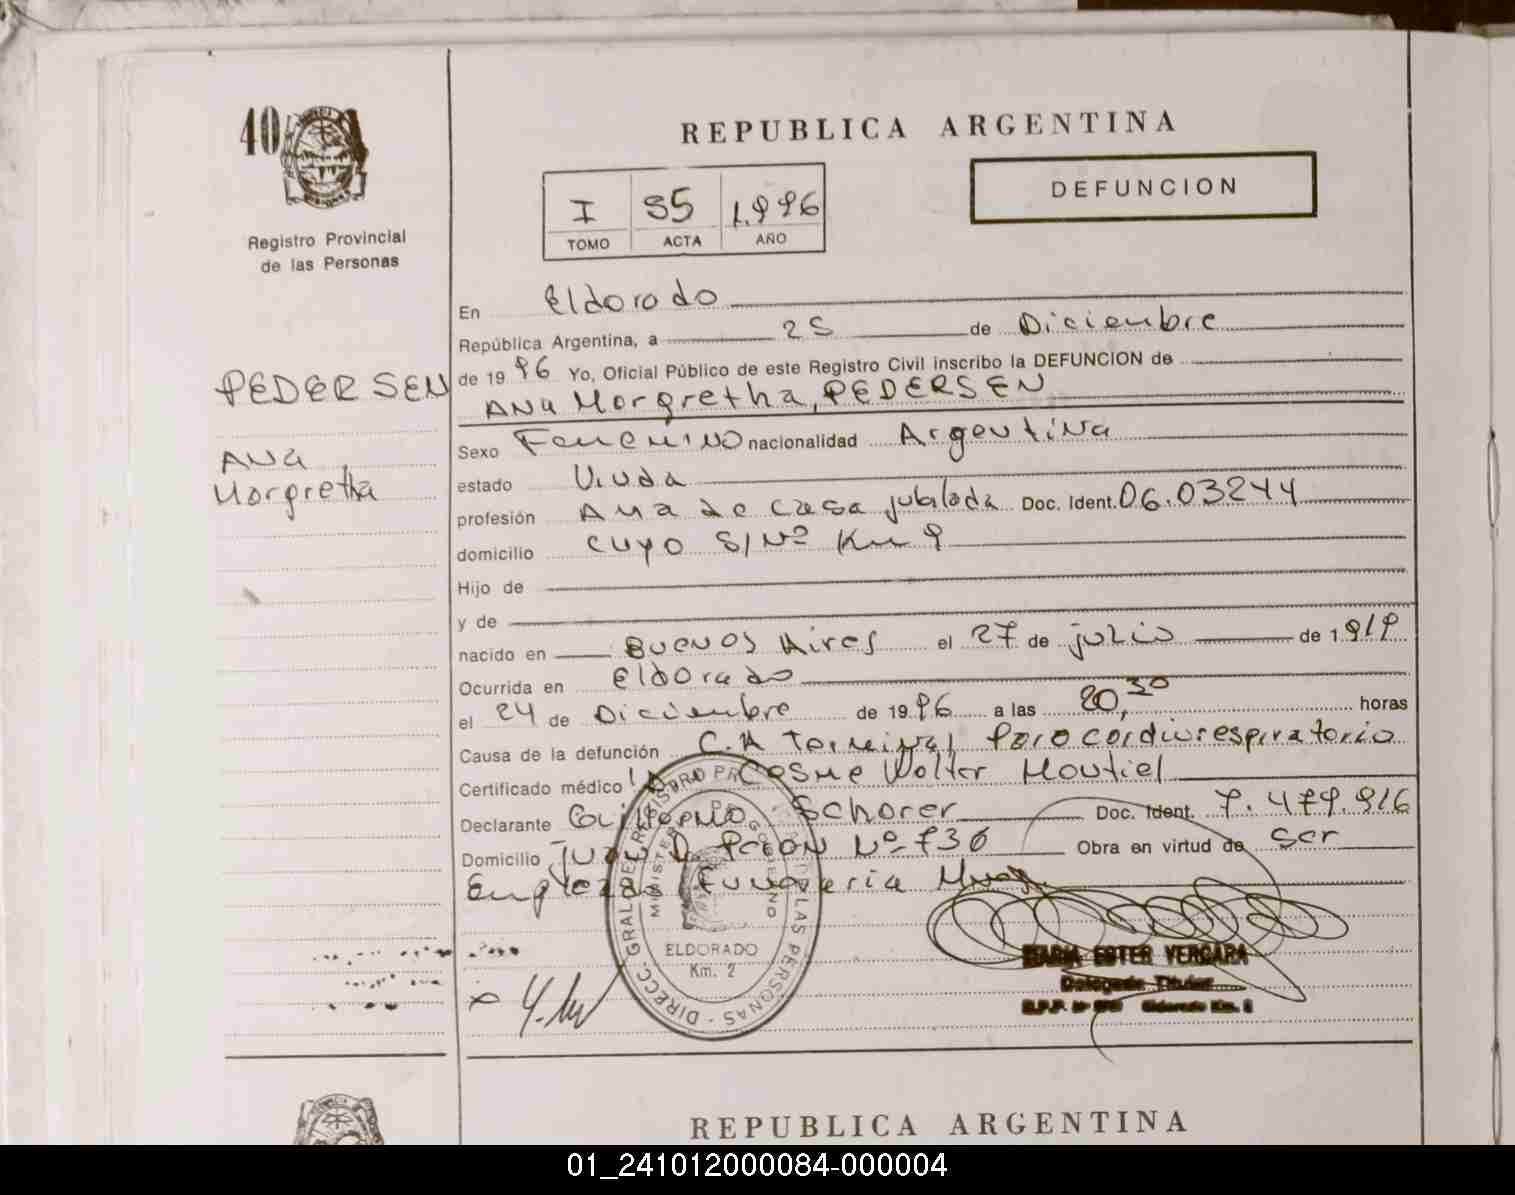 40
REPUBLICA ARGENTINA
I 95 1.996
TOMO ACTA AÑO
DEFUNCION
Registro Provincial
de las Personas
En Eldorado
República Argentina, a 25 de Diciembre
de 1996 Yo, Oficial Público de este Registro Civil inscribo la DEFUNCION de
PEDERSEN
ANA Margretha, PEDERSEN
Sexo Femenino nacionalidad Argentina
ANA
estado Viuda
Margretha
profesión Ama de casa jubilada Doc. Ident. 06.03244
domicilio Cuyo S/Nº Km 9
Hijo de
y de
nacido en Buenos Aires el 27 de julio de 1.919
Ocurrida en Eldorado
el 24 de Diciembre de 1996 a las 20,30 horas
Causa de la defunción C.A Terminal, Paro cardiorespiratorio
Certificado médico Cosme Walter Montiel
Declarante Guillermo Schorer Doc. Ident. 7.479.916
Domicilio Juan D. Perón Nº 736 Obra en virtud de ser
Empleado Funeraria
DIRECC. GRAL. DEL REGISTRO PROV. DE LAS PERSONAS
MINISTERIO DE GOBIERNO
ELDORADO
Km. 2
MARIA ESTER VERGARA
Delegada Titular
Eldorado Km. 2
REPUBLICA ARGENTINA
01_241012000084-000004